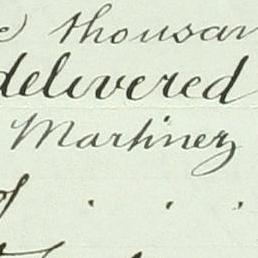 thousan
delivered
Martinez